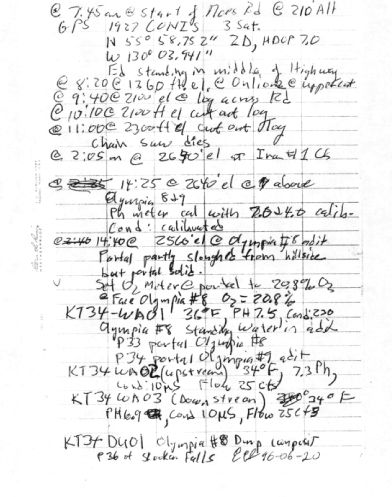 @ 7:45 am @ start of Mors Rd @ 210' Alt
GPS 1927 CONUS 3 Sat.
N 55° 58.752" 2D, HDOP 7.0
W 130° 03.941"
Ed standing in middle of Highway
@ 8:20 @ 1360 ft el, @ Online @ uppercut
@ 9:40 @ 2100' el @ log across Rd
@ 10:10 @ 2100 ft el cut out log
@ 11:00 @ 2300 ft el cut out log
chain saw dies
@ 2:05 m @ 2640' el at #1 Cb
14:25 @ 2640' el @ above
Olympia 8&9
Ph meter cal with 7.0 & 4.0 calib.
Cond: calibrated
14:40 @ 2560' el @ Olympia #8 adit
Portal partly sloughed from hillside
but portal solid.
Set O2 Meter @ portal to 20.8% O2
@ Face Olympia #8 O2 = 20.8%
KT34-WA01 36°F, PH 7.5, Cond. 220
Olympia #8 standing water in adit
P33 portal Olympia #8
P34 portal Olympia #9 adit
KT34 WA02 (upstream) 34°F, 7.3 Ph,
cond 10µS Flow 25 cfs
KT34 WA03 (Downstream) 34°F
PH 6.9, cond 10µS, Flow 25 cfs
KT34 DU01 Olympia #8 Dump composit
P36 of Falls 96-06-20